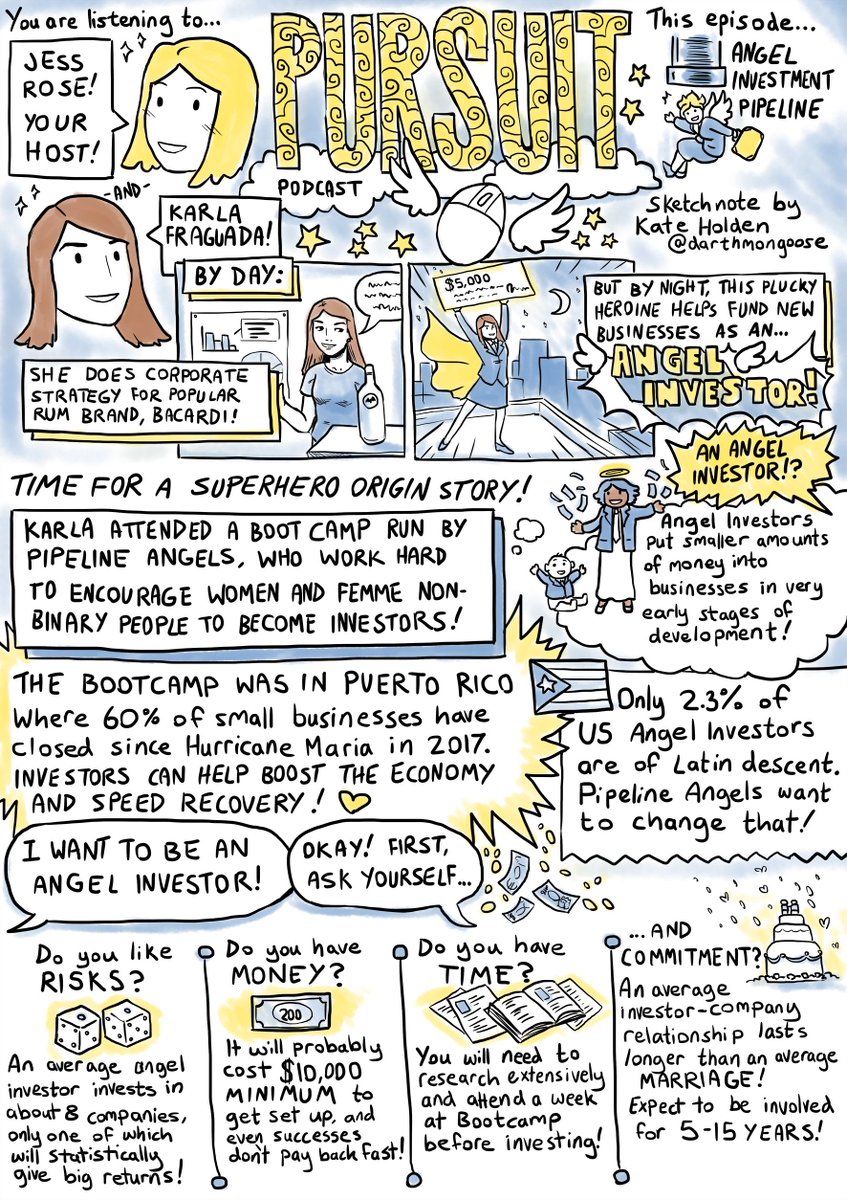 You are listening to...
JESS
ROSE!
YOUR
HOST!
PURSUIT
PODCAST
This episode...
ANGEL
INVESTMENT
PIPELINE
Sketchnote by
Kate Holden
@darthmongoose
-AND-
KARLA
FRAGUADA!
BY DAY:
SHE DOES CORPORATE
STRATEGY FOR POPULAR
RUM BRAND, BACARDI!
$5,000
BUT BY NIGHT, THIS PLUCKY
HEROINE HELPS FUND NEW
BUSINESSES AS AN...
ANGEL
INVESTOR!
TIME FOR A SUPERHERO ORIGIN STORY!
KARLA ATTENDED A BOOT CAMP RUN BY
PIPELINE ANGELS, WHO WORK HARD
TO ENCOURAGE WOMEN AND FEMME NON-
BINARY PEOPLE TO BECOME INVESTORS!
AN ANGEL
INVESTOR!?
Angel Investors
put smaller amounts
of money into
businesses in very
early stages of
development!
THE BOOTCAMP WAS IN PUERTO RICO
Where 60% of small businesses have
closed since Hurricane Maria in 2017.
INVESTORS CAN HELP BOOST THE ECONOMY
AND SPEED RECOVERY!
Only 2.3% of
US Angel Investors
are of Latin descent.
Pipeline Angels want
to change that!
I WANT TO BE AN
ANGEL INVESTOR!
OKAY! FIRST,
ASK YOURSELF...
Do you like
RISKS?
An average angel
investor invests in
about 8 companies,
only one of which
will statistically
give big returns!
Do you have
MONEY?
200
It will probably
cost $10,000
MINIMUM to
get set up, and
even successes
don't pay back fast!
Do you have
TIME?
You will need to
research extensively
and attend a week
at Bootcamp
before investing!
... AND
COMMITMENT?
An average
investor-company
relationship lasts
longer than an average
MARRIAGE!
Expect to be involved
for 5-15 YEARS!